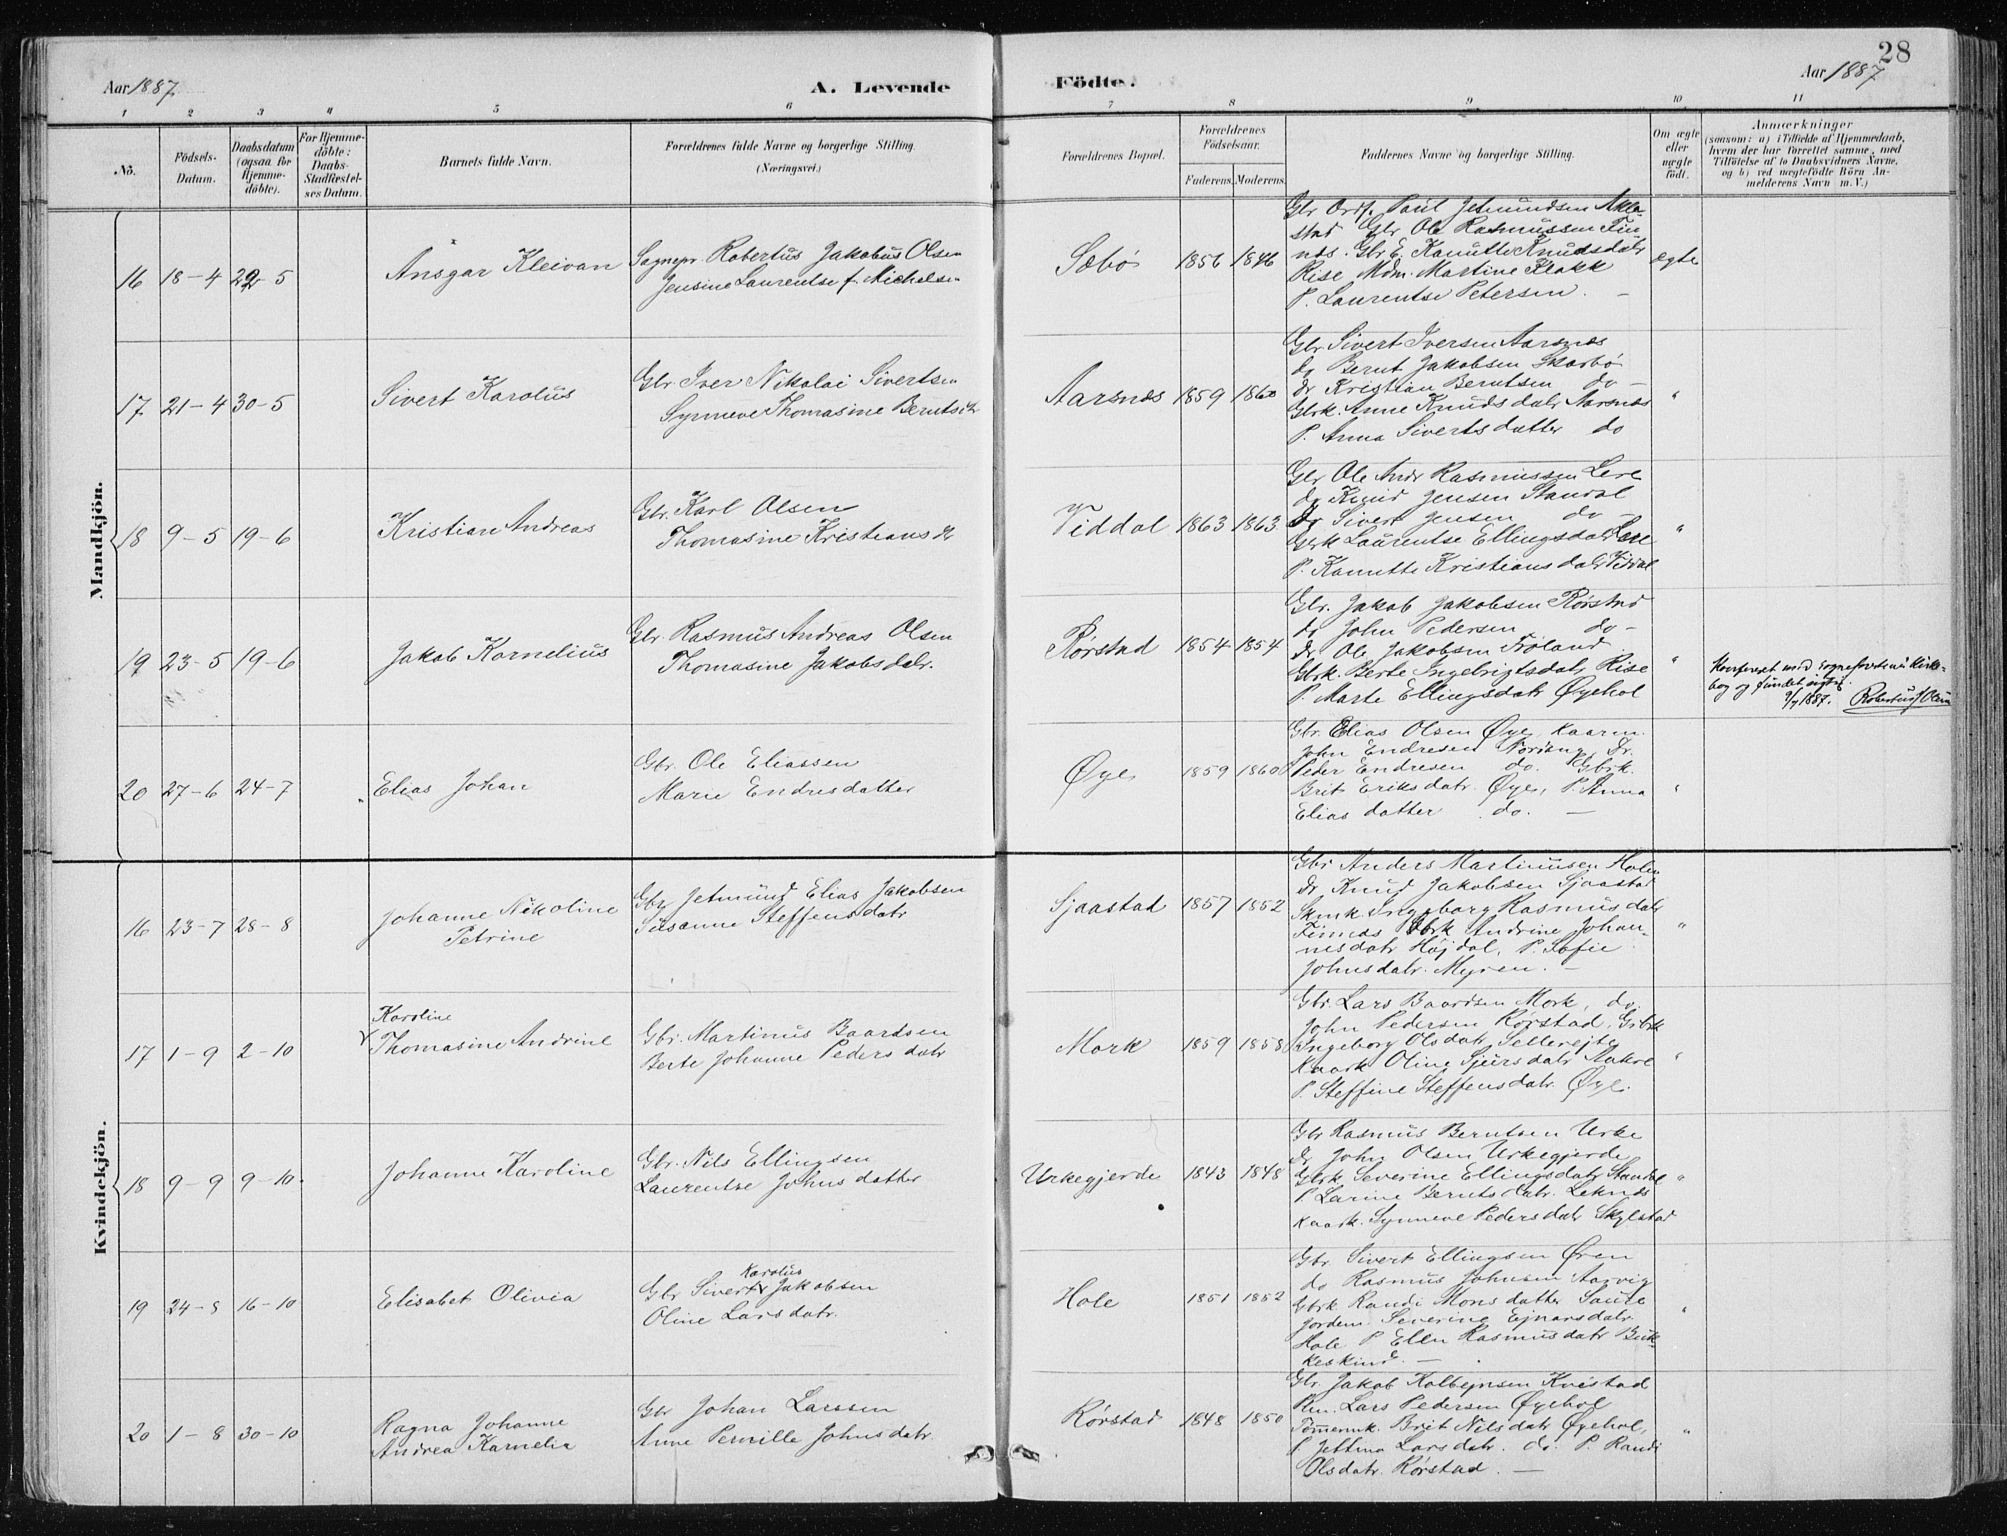 28
Aar 1887.
A. Levende
Födte.
Aar 1887
1 2 3 4 5 6 7 8 9 10 11
No.
Födsels-
Datum.
Daabsdatum
(ogsaa for
Hjemme-
döbte).
For Hjemme-
döbte:
Daabs-
Stadfæstel-
ses Datum.
Barnets fulde Navn.
Forældrenes fulde Navne og borgerlige Stilling.
(Næringsvei.)
Forældrenes Bopæl.
Forældrenes
Födselsaar.
Faderens.
Moderens.
Faddernes Navne og borgerlige Stilling.
Om ægte
eller
uægte
födt.
Anmærkninger
(saasom: a) i Tilfælde af Hjemmedaab,
hvem der har forrettet samme, med
Tilföielse af to Daabsvidners Navne,
og b) ved uægtefödte Börn An-
melderens Navn m. V.)
Mandkjön.
16 18-4 22-5
Ansgar Kleivan
Sognepr. Robertus Jakobus Olsen
Jensine Laurentse f. Michelsen
Sæbø
1856 1846
Gbr Ordf. Paul Jetmundsen Akle-
stad Gbr Ole Rasmussen Fin-
nes. Gbr E. Kanutte Knudsdatr
Rise Mdm. Martine Flakk
P. Laurentse Petersen. —
ægte
17 21-4 30-5
Sivert Karolus
Gbr Iver Nikolai Sivertsen
Synneve Thomasine Berntsdr
Aarsnæs
1859 1860
Gbr Sivert Iversen Aarsnæs
do Bernt Jakobsen Skarbø
Dr Kristian Berntsen do —
Gbrk. Anne Knudsdatr Aarsnæs
P. Anna Sivertsdatter do
"
18 9-5 19-6
Kristian Andreas
Gbr. Karl Olsen
Thomasine Kristiansdr
Viddal
1863 1863
Gbr Ole Andr Rasmussen Lere
do Knud Jensen Standal
Dr Sivert Jensen do —
Gbrk Laurentse Ellingsdatr Lere
P. Kanutte Kristiansdatr Viddal
"
19 23-5 19-6
Jakob Kornelius
Gbr. Rasmus Andreas Olsen
Thomasine Jakobsdatr.
Rørstad
1854 1854
Gbr. Jakob Jakobsen Rørstad
do John Pedersen do —
Dr. Ole Jakobsen Frøland
Gbrk. Berte Ingebrigtsdatr Rise
P. Marte Ellingsdatr Øyehol
"
Konfereret med sogneprestens Kirke-
bog og fundet rigtig.
9/7 1887. Robertus J Olsen
20 27-6 24-7
Elias Johan
Gbr. Ole Eliassen
Marie Endresdatter
Øye
1859 1860
Gbr. Elias Olsen Øye, Kaarm.
John Endresen Norang, Dr.
Peder Endresen do. Gbrk.
Brit Eriksdatr. Øye, P. Anna
Eliasdatter do. —
"
Kvindekjön.
16 23-7 28-8
Johanne Nikoline
Petrine
Gbr Jetmund Elias Jakobsen
Susanne Steffensdatr
Sjaastad
1857 1852
Gbr Anders Martinusen Holen
Dr Knud Jakobsen Sjaastad
Ingeborg Rasmusdatr
Finnes Gbrk Andrine Johan-
nesdatr Højdal, P. Sofie
Johnsdatr. Myren. —
"
17 1-9 2-10
Karoline
Thomasine Andrine
Gbr. Martinus Baardsen
Berte Johanne Pedersdatr
Mork
1859 1858
Gbr. Lars Baardsen Mork, do.
John Pedersen Rørstad, Gbrk
Ingeborg Olsdatr Sellerejte
Kaark Oline Sjursdatr Aakre
P. Steffine Steffensdatr. Øye.
"
18 9-9 9-10
Johanne Karoline
Gbr. Nils Ellingsen
Laurentse Johnsdatter
Urkegjerde
1843 1848
Gbr Rasmus Berntsen Urke
Dr John Olsen Urkegjerde
Gbrk Severine Ellingsdatr Standal
P Larine Berntsdatr. Leknes
Kaark. Synneve Pedersdatr Skylstad
"
19 24-8 16-10
Elisabet Olivia
Karolus
Gbr Sivert Jakobsen
Oline Larsdatr.
Hole
1851 1852
Gbr. Sivert Ellingsen Øren
do Rasmus Johnsen Aarvig
Gbrk Randi Monsdatter Saure
Jordem. Severine Ejnarsdatr.
Hole P Ellen Rasmusdatr Buk-
keskind. —
"
20 1-8 30-10
Ragna Johanne
Andrea Kornelia
Gbr Johan Larssen
Anne Pernille Johnsdatr.
Rørstad
1848 1850
Gbr. Jakob Kolbejnsen Kvistad
Lars Pedersen Øyehol
Tømermk. Brit Nilsdatr Øyehol,
P Jettina Larsdatr. do. P. Randi
Olsdatr. Rørstad. —
"